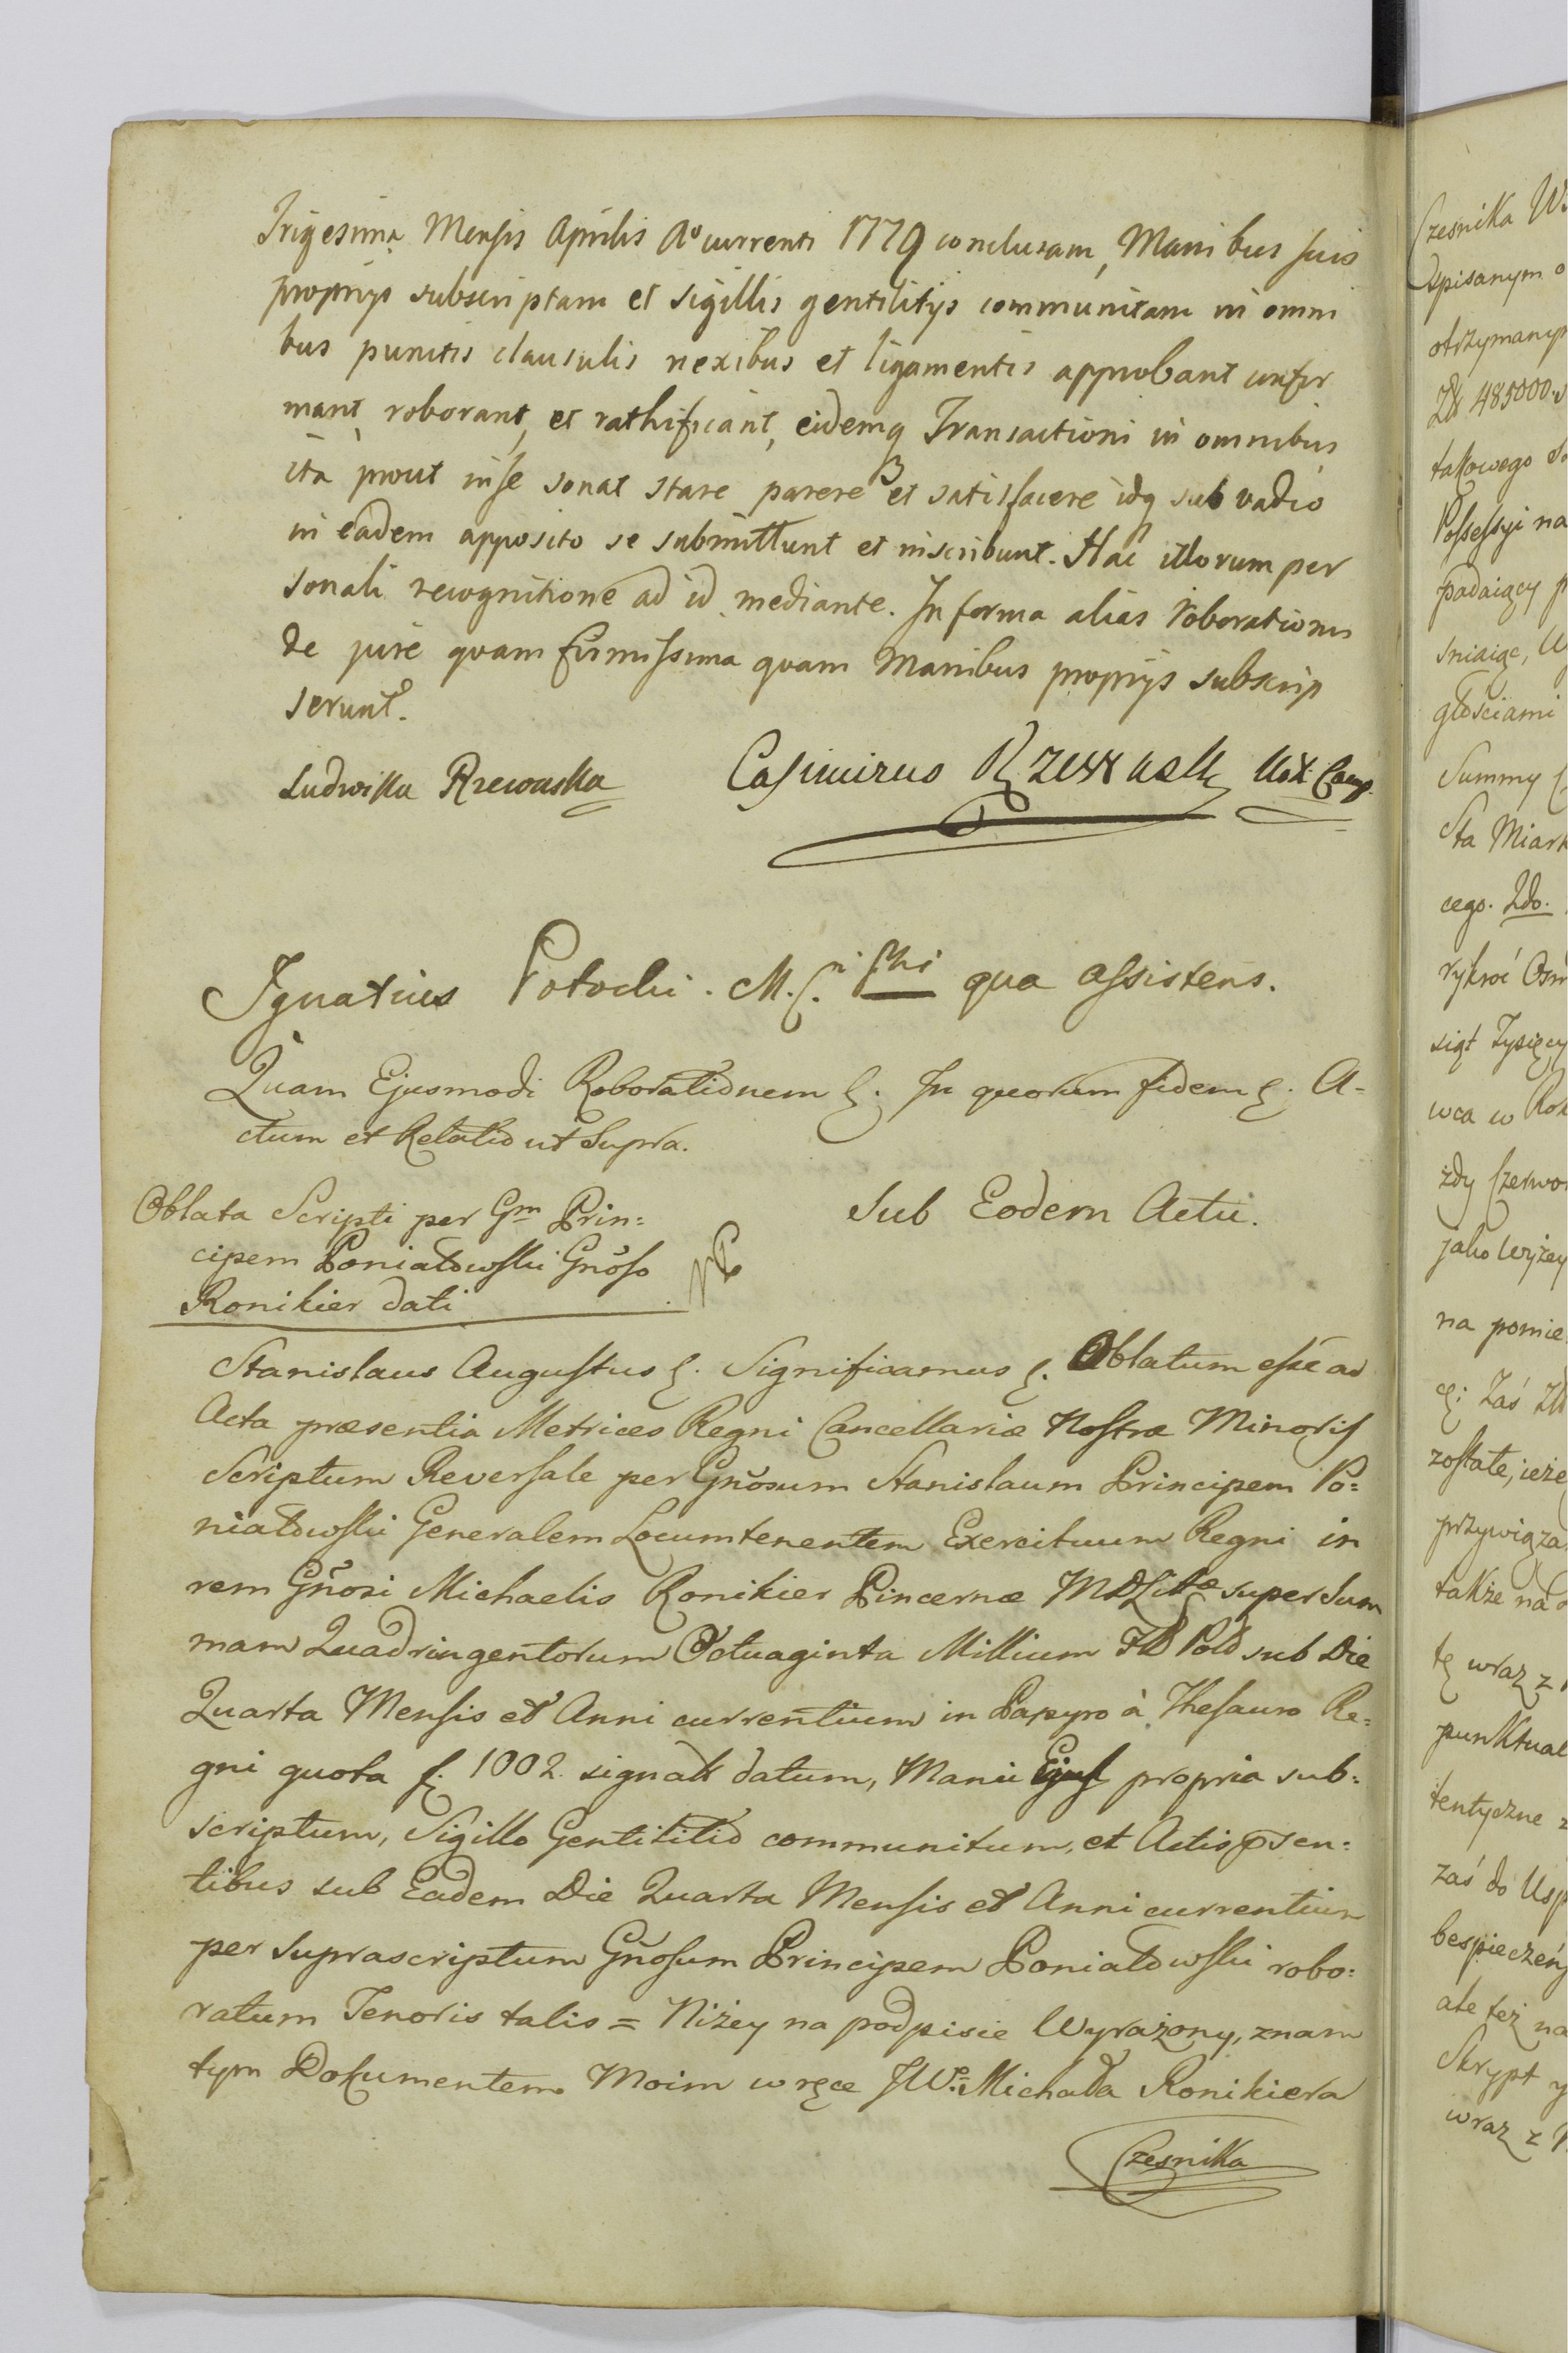 Trigesima Mensis Aprilis Ao currenti 1779 conclusam, Manibus suis
proprijs subscriptam et sigillis gentilitijs communitam in omni
bus punctis clausulis nexibus et ligamentis approbant confir
mant roborant, et rathificant, eidemq Transactioni in omnibus
ita prout in se sonat stare parere et satisfacere idq sub vadio
in eadem apposito se submittunt et inscribunt. Hac illorum per
sonali recognitione ad id mediante. In forma alias roborationis
de jure quam firmissima quam Manibus proprijs subscrip
serunt.
Ludwika Rzewuska
Casimirus Rzewuski Not: Camp.
Ignatius Potocki. M. qua assistens.
Quam Ejusmodi Roborationem &. In quorum fidem &. A-
ctum et Relatio ut Supra.
Sub Eodem Actu.
Oblata Scripti per Gm Prin:
cipem Poniatowski Gnoso
Ronikier dati
Stanislaus Augustus &. Significamus &. Oblatum esse ad
Acta præsentia Metrices Regni Cancellariæ Nostræ Minoris
Scriptum Reversale per Gnosum Stanislaum Principem Po:
niatowski Generalem Locumtenentem Exercituum Regni in
rem Gnosi Michaelis Ronikier Pincernæ MDLittæ super Sum
mam Quadringentorum Octuaginta Millium Fl Pold sub Die
Quarta Mensis et Anni currentium in Papyro à Thesauro Re:
gni quota f. 1002. signata datum, Manu Ejus propria sub:
scriptum, Sigillo Gentilitio communitum, et Actis psen:
tibus sub Eadem Die Quarta Mensis et Anni currentium
per suprascriptum Gnosum Principem Poniatowski robo:
ratum Tenoris talis = Niżey na podpisie Wyrażony, znam
tym Dokumentem Moim w ręce JWo Michała Ronikiera
Czesnika
Czesnika
opisanym
otrzymanym
Zł 485000.
takowego
Possessyi na
padaiący
sniaiąc,
głościami
Summy
Sta
cego. 2do.
rykroć
siąt Tysięcy
wca w
żdy
jako wyżey
na
&: Zaś
zostałe,
przywiąza
także na
tę wraz z
punktual
tentyczne
zaś do
bespieczeń
ale też na
Skrypt
wraz z